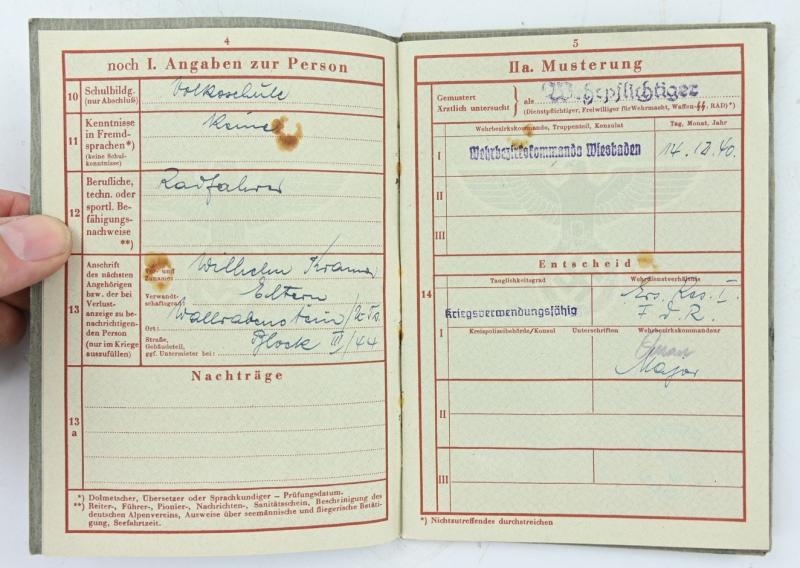 4
noch I. Angaben zur Person
10
Schulbildg.
(nur Abschluß)
Volksschule
11
Kenntnisse
in Fremd-
sprachen*)
(keine Schul-
kenntnisse)
Keine
12
Berufliche,
techn. oder
sportl. Be-
fähigungs-
nachweise
**)
Radfahrer
13
Anschrift
des nächsten
Angehörigen
bzw. der bei
Verlust-
anzeige zu be-
nachrichtigen-
den Person
(nur im Kriege
auszufüllen)
Vor- und
Zuname:
Wilhelm Kramer
Verwandt-
schaftsgrad:
Eltern
Ort:
Wallrabenstein
Straße,
Gebäudeteil,
ggf. Untermieter bei:
Block III/44
13
a
Nachträge
*) Dolmetscher, Übersetzer oder Sprachkundiger – Prüfungsdatum.
**) Reiter-, Führer-, Pionier-, Nachrichten-, Sanitätsschein, Bescheinigung des
deutschen Alpenvereins, Ausweise über seemännische und fliegerische Betäti-
gung, Seefahrtzeit.
5
IIa. Musterung
Gemustert
Ärztlich untersucht
als
Wehrpflichtiger
(Dienstpflichtiger, Freiwilliger für Wehrmacht, Waffen-SS, RAD)*)
Wehrbezirkskommando, Truppenteil, Konsulat
Tag, Monat, Jahr
I
Wehrbezirkskommando Wiesbaden
14.12.40.
II
III
Entscheid
14
Tauglichkeitsgrad
Wehrdienstverhältnis
Kriegsverwendungsfähig
Ers. Res. I
F. d. R.
Kreispolizeibehörde/Konsul
Unterschriften
Wehrbezirkskommandeur
I
Major
II
III
*) Nichtzutreffendes durchstreichen